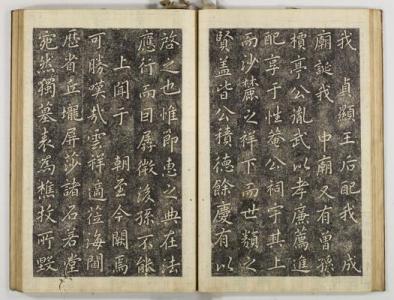 我 貞顯王后配我 成
廟誕我 中廟又有曾孫
櫝亭公胤武以孝廉薦進
配享于性菴公祠宇其上
而沙麓之祥下而世類之
賢盖皆公積德餘慶有以
啓之也惟卽惠之典在法
應行而曰孱微後孫不能
上聞于 朝至今闕焉
可勝嘆哉雲祥適莅海閫
歷省丘壠屏莎諸石若堂
宛然獨墓表爲樵牧所毀